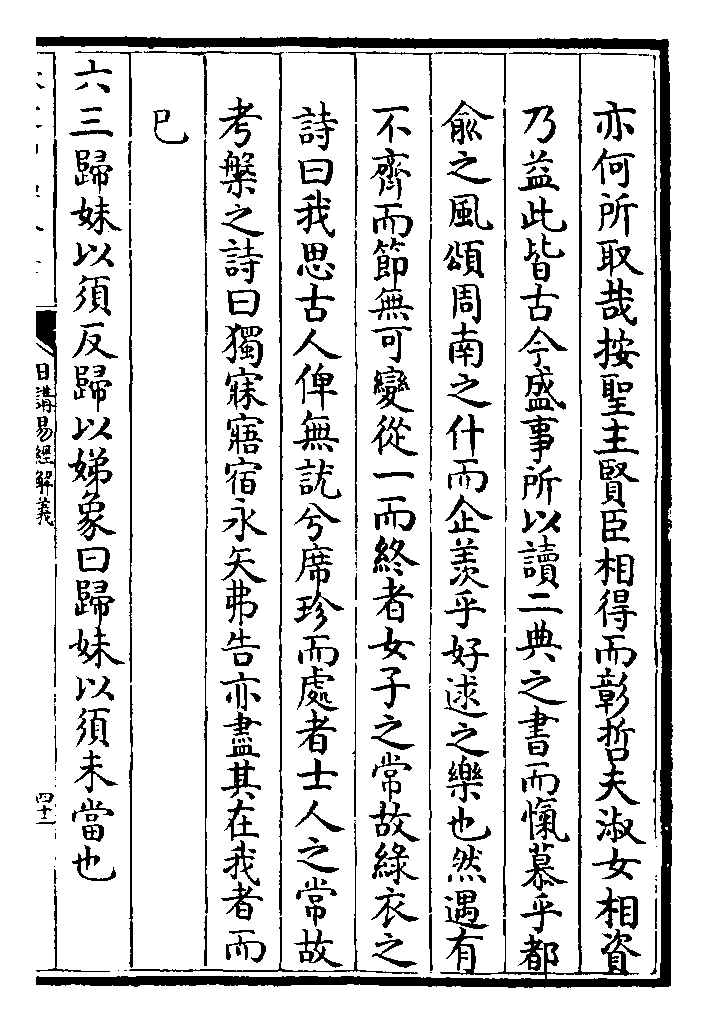 亦何所取哉按聖主賢臣相得而彰哲夫淑女相資
乃益此皆古今盛事所以讀二典之書而愾慕乎都
俞之風頌周南之什而企羨乎好逑之樂也然遇有
不齊而節無可變從一而終者女子之常故綠衣之
詩曰我思古人俾無訧兮席珍而處者士人之常故
考槃之詩曰獨寐寤宿永矢弗告亦盡其在我者而
已
六三歸妹以須反歸以娣象曰歸妹以須未當也
日講易經解義
四十二